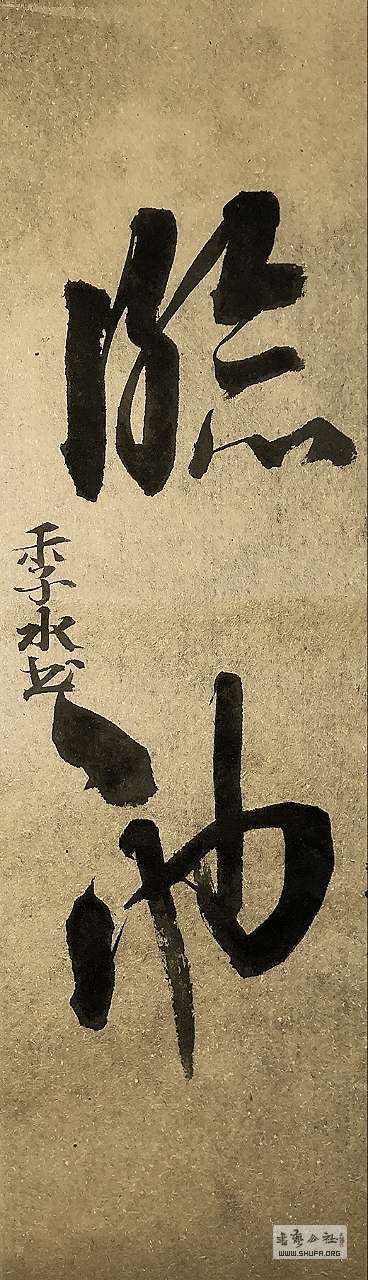 臨池
季水书
书艺公社
WWW.SHUFA.ORG